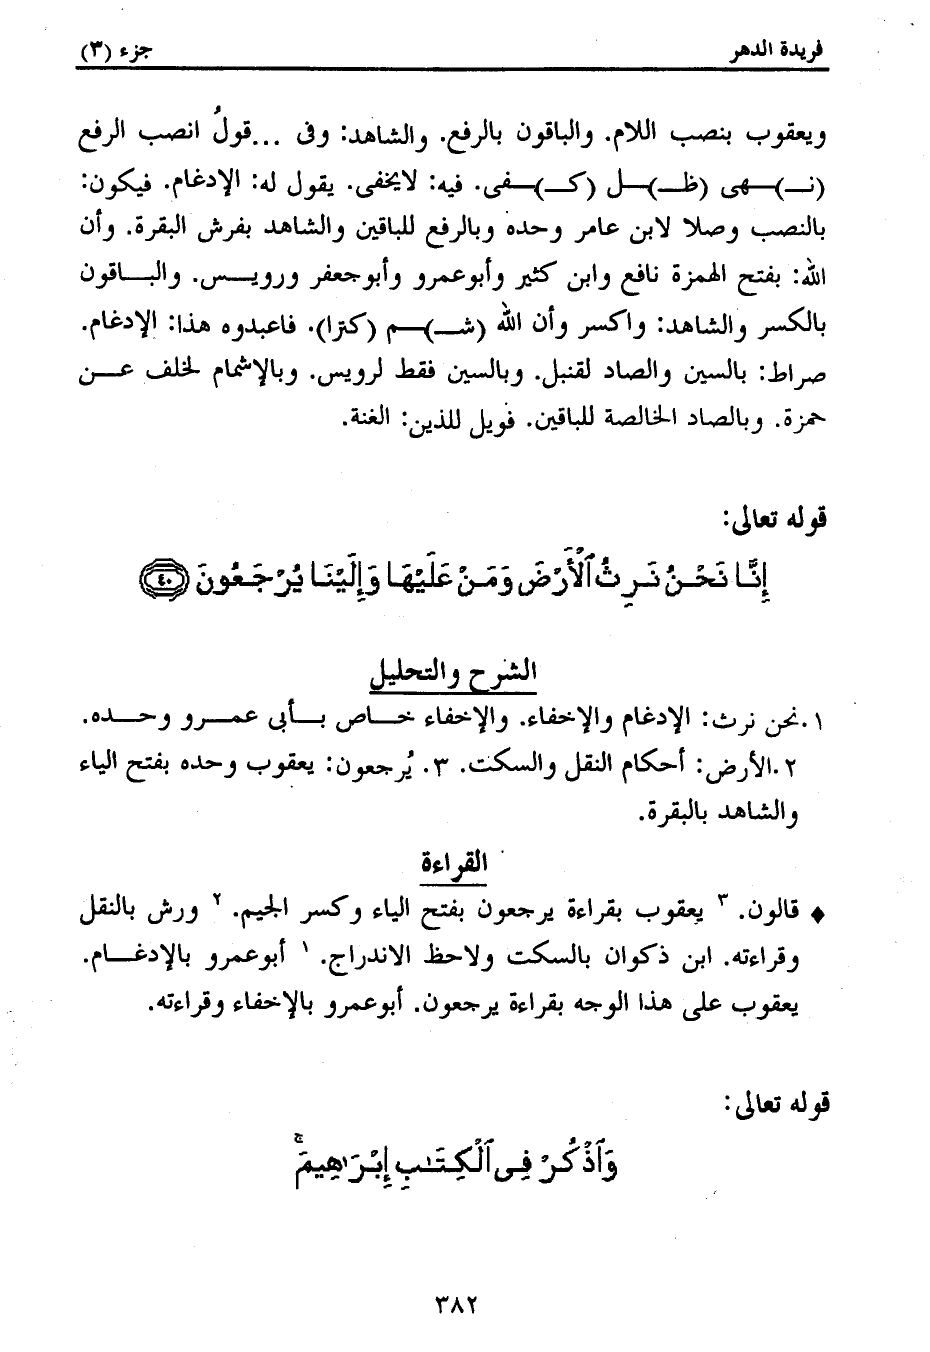 فريدة الدهر جزء (٣)
ويعقوب بنصب اللام. والباقون بالرفع. والشاهد: وفى ...قولُ انصب الرفع
(نـ)ـهى (ظـ)ـل (كـ)ـفى. فيه: لايخفى. يقول له: الإدغام. فيكون:
بالنصب وصلا لابن عامر وحده وبالرفع للباقين والشاهد بفرش البقرة. وأن
الله: بفتح الهمزة نافع وابن كثير وأبوعمرو وأبوجعفر ورويس. والباقون
بالكسر والشاهد: واكسر وأن الله (شـ)ـم (كنزا). فاعبدوه هذا: الإدغام.
صراط: بالسين والصاد لقنبل. وبالسين فقط لرويس. وبالإشمام لخلف عن
حمزة. وبالصاد الخالصة للباقين. فويل للذين: الغنة.
قوله تعالى:
إِنَّا نَحْنُ نَرِثُ ٱلْأَرْضَ وَمَنْ عَلَيْهَا وَإِلَيْنَا يُرْجَعُونَ ٤٠
الشرح والتحليل
١.نحن نرث: الإدغام والإخفاء. والإخفاء خاص بأبى عمرو وحده.
٢.الأرض: أحكام النقل والسكت. ٣. يُرجعون: يعقوب وحده بفتح الياء
والشاهد بالبقرة.
القراءة
♦ قالون. ٣ يعقوب بقراءة يرجعون بفتح الياء وكسر الجيم. ٢ ورش بالنقل
وقراءته. ابن ذكوان بالسكت ولاحظ الاندراج. ١ أبوعمرو بالإدغام.
يعقوب على هذا الوجه بقراءة يرجعون. أبوعمرو بالإخفاء وقراءته.
قوله تعالى:
وَٱذْكُرْ فِى ٱلْكِتَٰبِ إِبْرَٰهِيمَ ۚ
٣٨٢